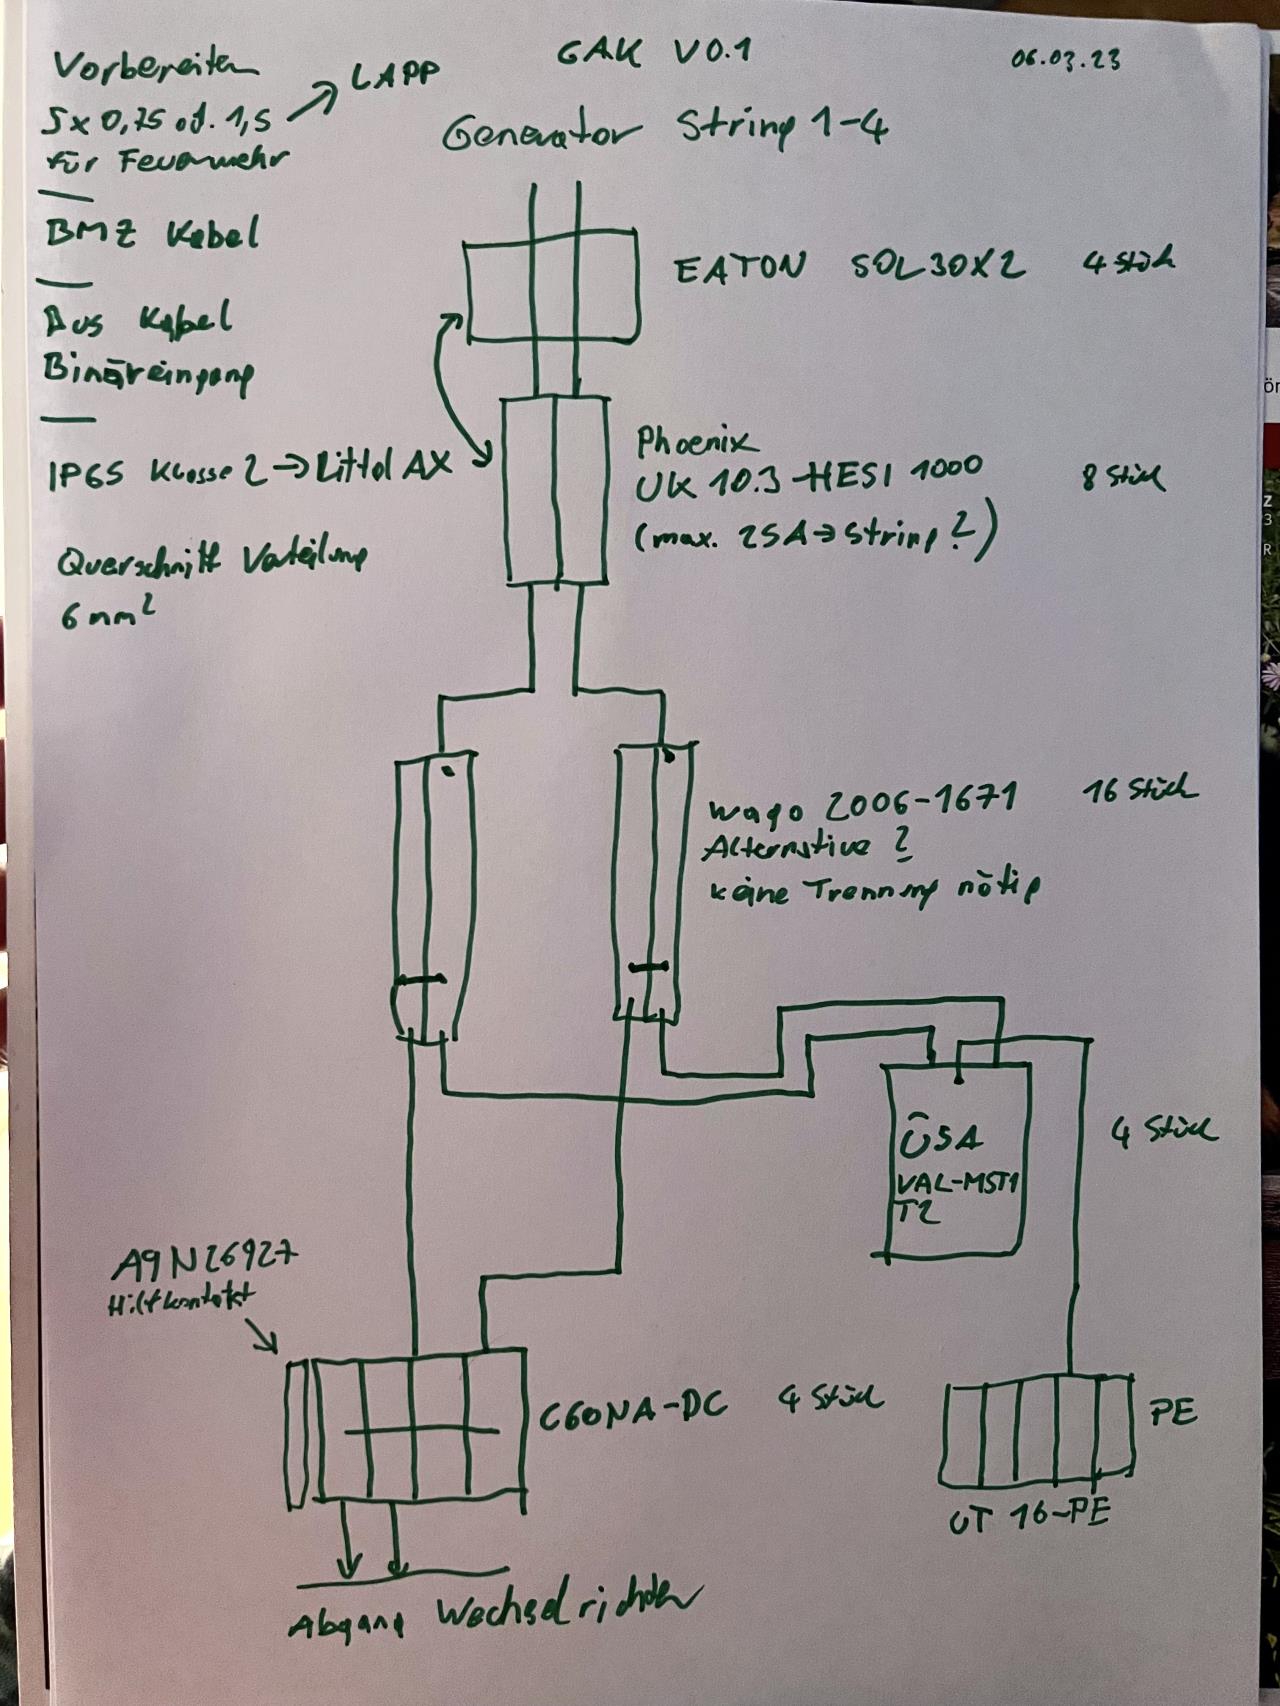 GAK V0.1
06.03.23
Vorbereiten
5x 0,75 od. 1,5
LAPP
für Feuerwehr
BMZ Kabel
Aus Kabel
Binäreingang
IP65 Klasse 2 → Littol AX
Querschnitt Verteilung
6mm²
Generator String 1-4
EATON SOL30X2 4 Stück
Phoenix
UK 10.3-HESI 1000 8 Stück
(max. 25A → String ?)
Wago 2006-1671 16 Stück
Alternative ?
keine Trennung nötig
ÜSA
VAL-MST1
T2
4 Stück
A9N26927
Hilfkontakt
C60NA-DC 4 Stück
PE
UT 16-PE
Abgang Wechselrichter